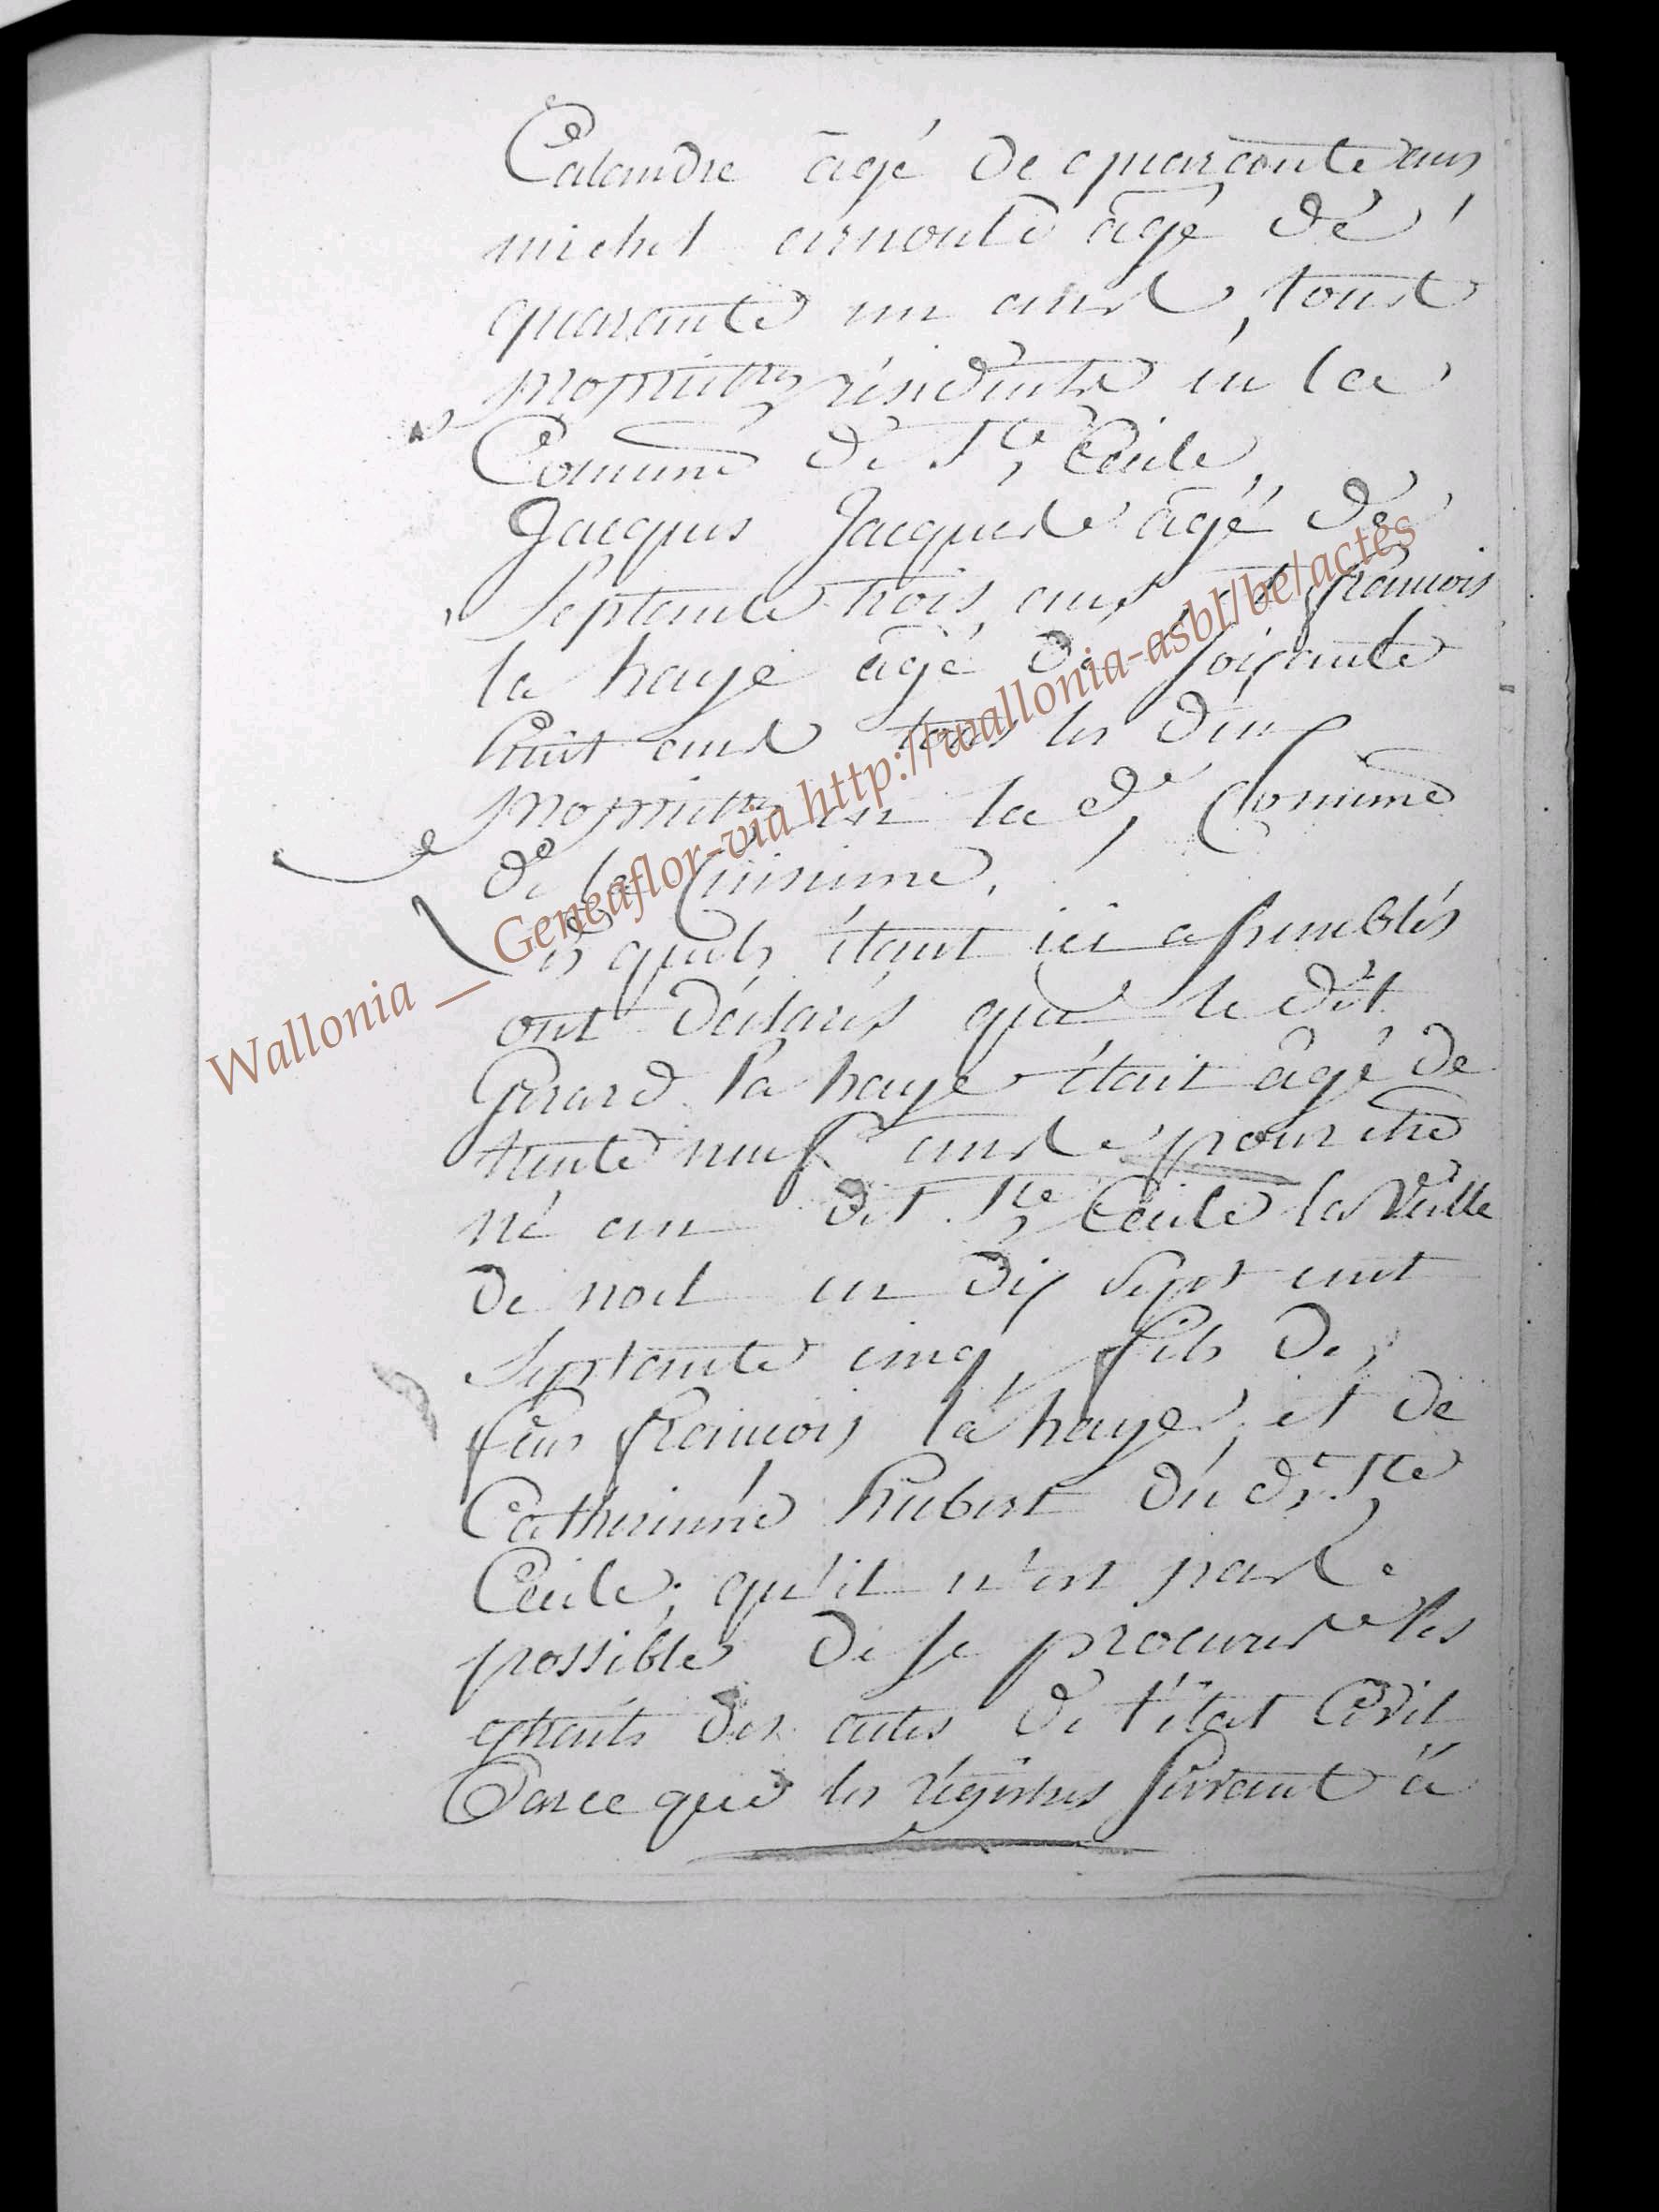 Calandre âgé de quarante ans
michel arnould âgé de
quarante un ans, tous
propriettres résidents en la
Comune de Ste Cécile,
Jacques Jacques âgé de
septante trois ans, et françois
la haye âgé de soixante
huit ans tous les deux
propriettres en la de Comune
de la Cuisinne,
Les quels étant ici assemblés
ont déclarés que le dit
Girard la haye était âgé de
trente neuf ans pour être
né au dit Ste Cécile la veille
de noel en dix sept cent
septante cinq, fils de
feu françois la haye, et de
Catherinne hubert du dt Ste
Cécile; qu'il n'est pas
possible de se procurer les
extraits des actes de l'état Civil
Parce que les régistres servant à
Wallonia _ Geneaflor-via http://wallonia-asbl/be/actes